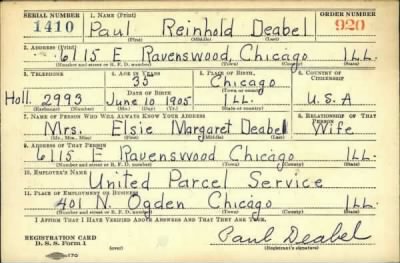 SERIAL NUMBER 1. NAME (Print) ORDER NUMBER
1410 Paul Reinhold Deabel 920
(First) (Middle) (Last)
2. ADDRESS (Print)
6115 E Ravenswood Chicago ILL.
(Number and street or R. F. D. number) (Town) (County) (State)
3. TELEPHONE 4. AGE IN YEARS 5. PLACE OF BIRTH 6. COUNTRY OF CITIZENSHIP
35 Chicago
DATE OF BIRTH (Town or county)
Holl. 2993 June 10 1905 ILL. U.S.A
(Exchange) (Number) (Mo.) (Day) (Yr.) (State or country)
7. NAME OF PERSON WHO WILL ALWAYS KNOW YOUR ADDRESS 8. RELATIONSHIP OF THAT PERSON
Mrs. Elsie Margaret Deabel Wife
(Mr., Mrs., Miss) (First) (Middle) (Last)
9. ADDRESS OF THAT PERSON
6115 E Ravenswood Chicago ILL.
(Number and street or R. F. D. number) (Town) (County) (State)
10. EMPLOYER'S NAME
United Parcel Service
11. PLACE OF EMPLOYMENT OR BUSINESS
401 N. Ogden Chicago ILL
(Number and street or R. F. D. number) (Town) (County) (State)
I AFFIRM THAT I HAVE VERIFIED ABOVE ANSWERS AND THAT THEY ARE TRUE.
REGISTRATION CARD
D. S. S. Form 1 (over) Paul Deabel
(Registrant's signature)